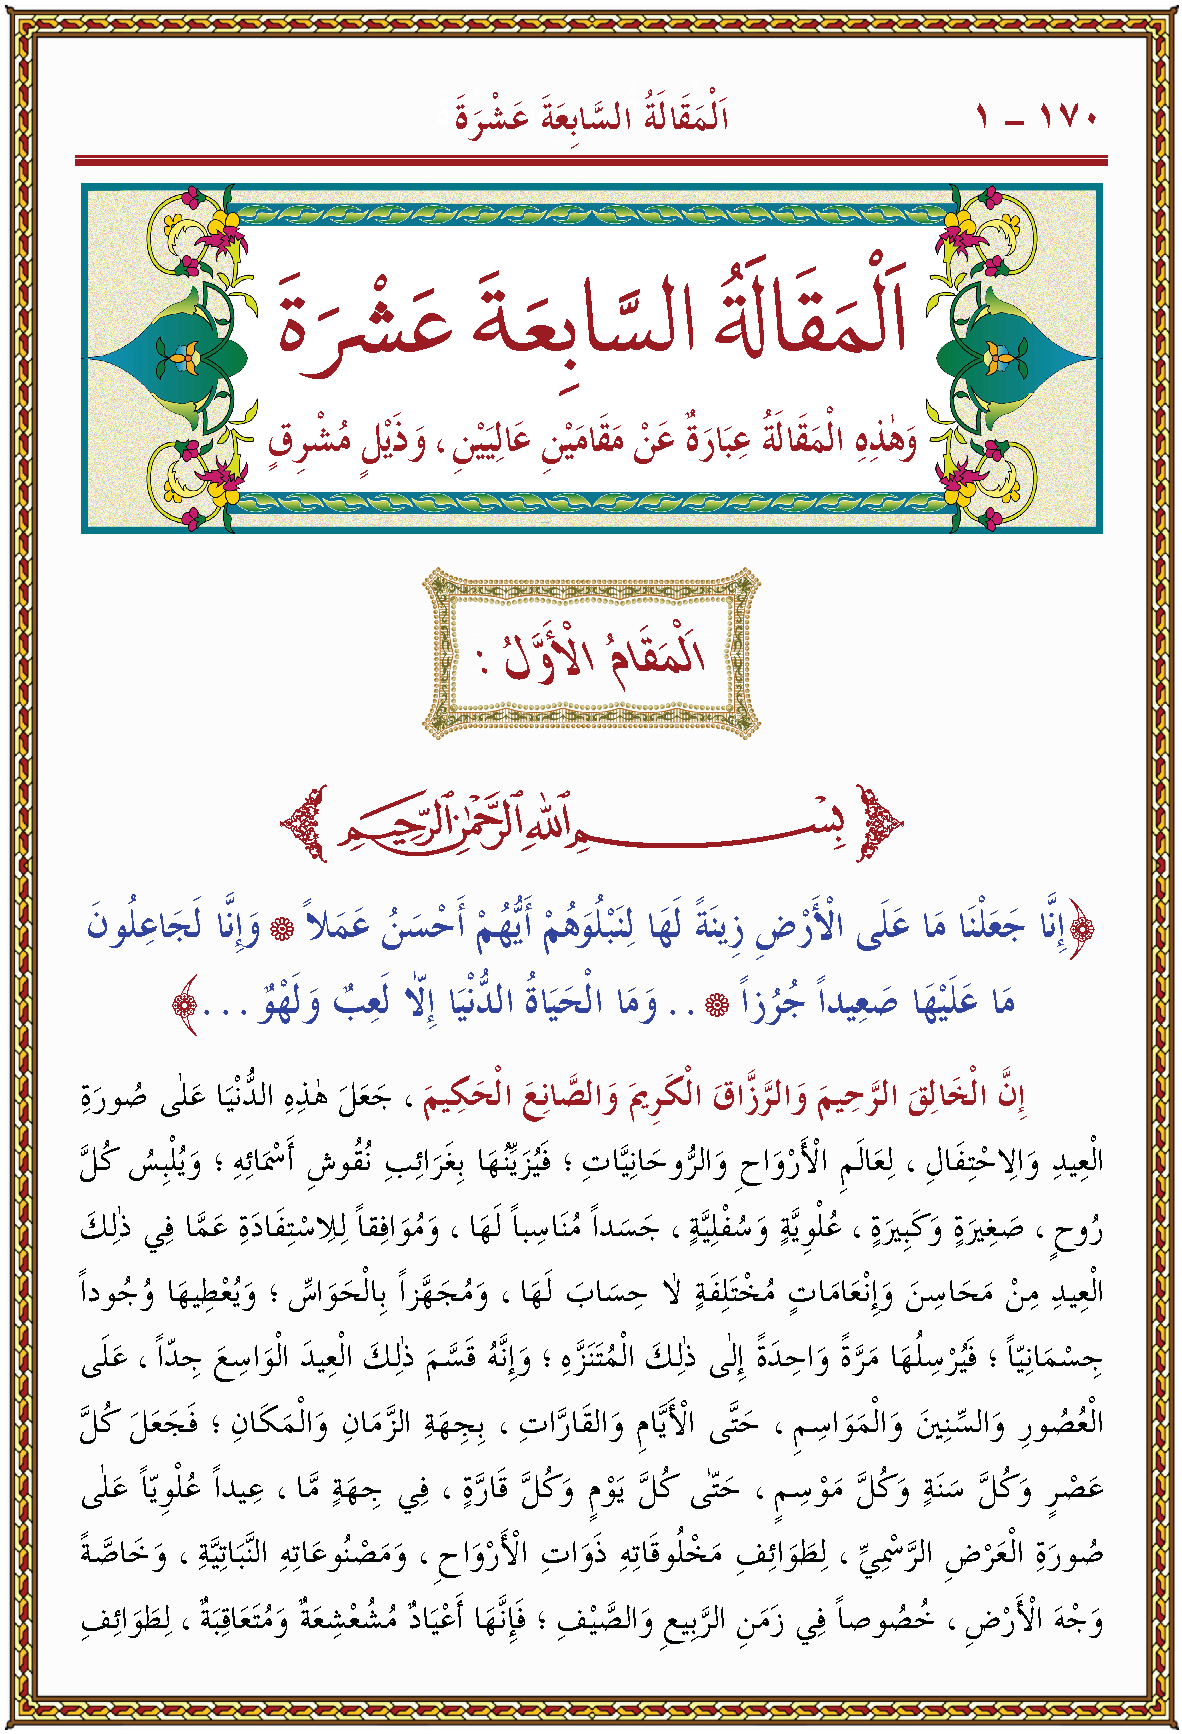 ١٧٠ – ١ اَلْمَقَالَةُ السَّابِعَةَ عَشْرَةَ
اَلْمَقَالَةُ السَّابِعَةَ عَشْرَةَ
وَهٰذِهِ الْمَقَالَةُ عِبَارَةٌ عَنْ مَقَامَيْنِ عَالِيَيْنِ ، وَذَيْلٍ مُشْرِقٍ
اَلْمَقَامُ الْأَوَّلُ :
بِسْمِ اللهِ الرَّحْمٰنِ الرَّحِيمِ
﴿إِنَّا جَعَلْنَا مَا عَلَى الْأَرْضِ زِينَةً لَهَا لِنَبْلُوَهُمْ أَيُّهُمْ أَحْسَنُ عَمَلاً ۞ وَإِنَّا لَجَاعِلُونَ
مَا عَلَيْهَا صَعِيداً جُرُزاً ۞ . . وَمَا الْحَيَاةُ الدُّنْيَا إِلَّا لَعِبٌ وَلَهْوٌ . . .﴾
إِنَّ الْخَالِقَ الرَّحِيمَ وَالرَّزَّاقَ الْكَرِيمَ وَالصَّانِعَ الْحَكِيمَ ، جَعَلَ هٰذِهِ الدُّنْيَا عَلٰى صُورَةِ
الْعِيدِ وَالِاحْتِفَالِ ، لِعَالَمِ الْأَرْوَاحِ وَالرُّوحَانِيَّاتِ ؛ فَيُزَيِّنُهَا بِغَرَائِبِ نُقُوشِ أَسْمَائِهِ ؛ وَيُلْبِسُ كُلَّ
رُوحٍ ، صَغِيرَةٍ وَكَبِيرَةٍ ، عُلْوِيَّةٍ وَسُفْلِيَّةٍ ، جَسَداً مُنَاسِباً لَهَا ، وَمُوَافِقاً لِلِاسْتِفَادَةِ عَمَّا فِي ذٰلِكَ
الْعِيدِ مِنْ مَحَاسِنَ وَإِنْعَامَاتٍ مُخْتَلِفَةٍ لَا حِسَابَ لَهَا ، وَمُجَهَّزاً بِالْحَوَاسِّ ؛ وَيُعْطِيهَا وُجُوداً
جِسْمَانِيّاً ؛ فَيُرْسِلُهَا مَرَّةً وَاحِدَةً إِلٰى ذٰلِكَ الْمُتَنَزَّهِ ؛ وَإِنَّهُ قَسَّمَ ذٰلِكَ الْعِيدَ الْوَاسِعَ جِدّاً ، عَلَى
الْعُصُورِ وَالسِّنِينَ وَالْمَوَاسِمِ ، حَتَّى الْأَيَّامِ وَالْقَارَّاتِ ، بِجِهَةِ الزَّمَانِ وَالْمَكَانِ ؛ فَجَعَلَ كُلَّ
عَصْرٍ وَكُلَّ سَنَةٍ وَكُلَّ مَوْسِمٍ ، حَتّٰى كُلَّ يَوْمٍ وَكُلَّ قَارَّةٍ ، فِي جِهَةٍ مَّا ، عِيداً عُلْوِيّاً عَلٰى
صُورَةِ الْعَرْضِ الرَّسْمِيِّ ، لِطَوَائِفِ مَخْلُوقَاتِهِ ذَوَاتِ الْأَرْوَاحِ ، وَمَصْنُوعَاتِهِ النَّبَاتِيَّةِ ، وَخَاصَّةً
وَجْهَ الْأَرْضِ ، خُصُوصاً فِي زَمَنِ الرَّبِيعِ وَالصَّيْفِ ؛ فَإِنَّهَا أَعْيَادٌ مُشَعْشِعَةٌ وَمُتَعَاقِبَةٌ ، لِطَوَائِفِ